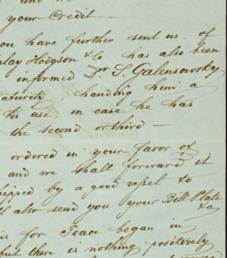 your Credit —
you have further sent us of
Hodgson & Co has also been
informed Dr S. Galensowsky
aturity handing him a
his use in case he has
the second or third —
ordered in your favor of
and we shall forward it
ipped by a good vessel to
ll also send you your Bill Plate
&c
is for Peace began in
but there is nothing positively